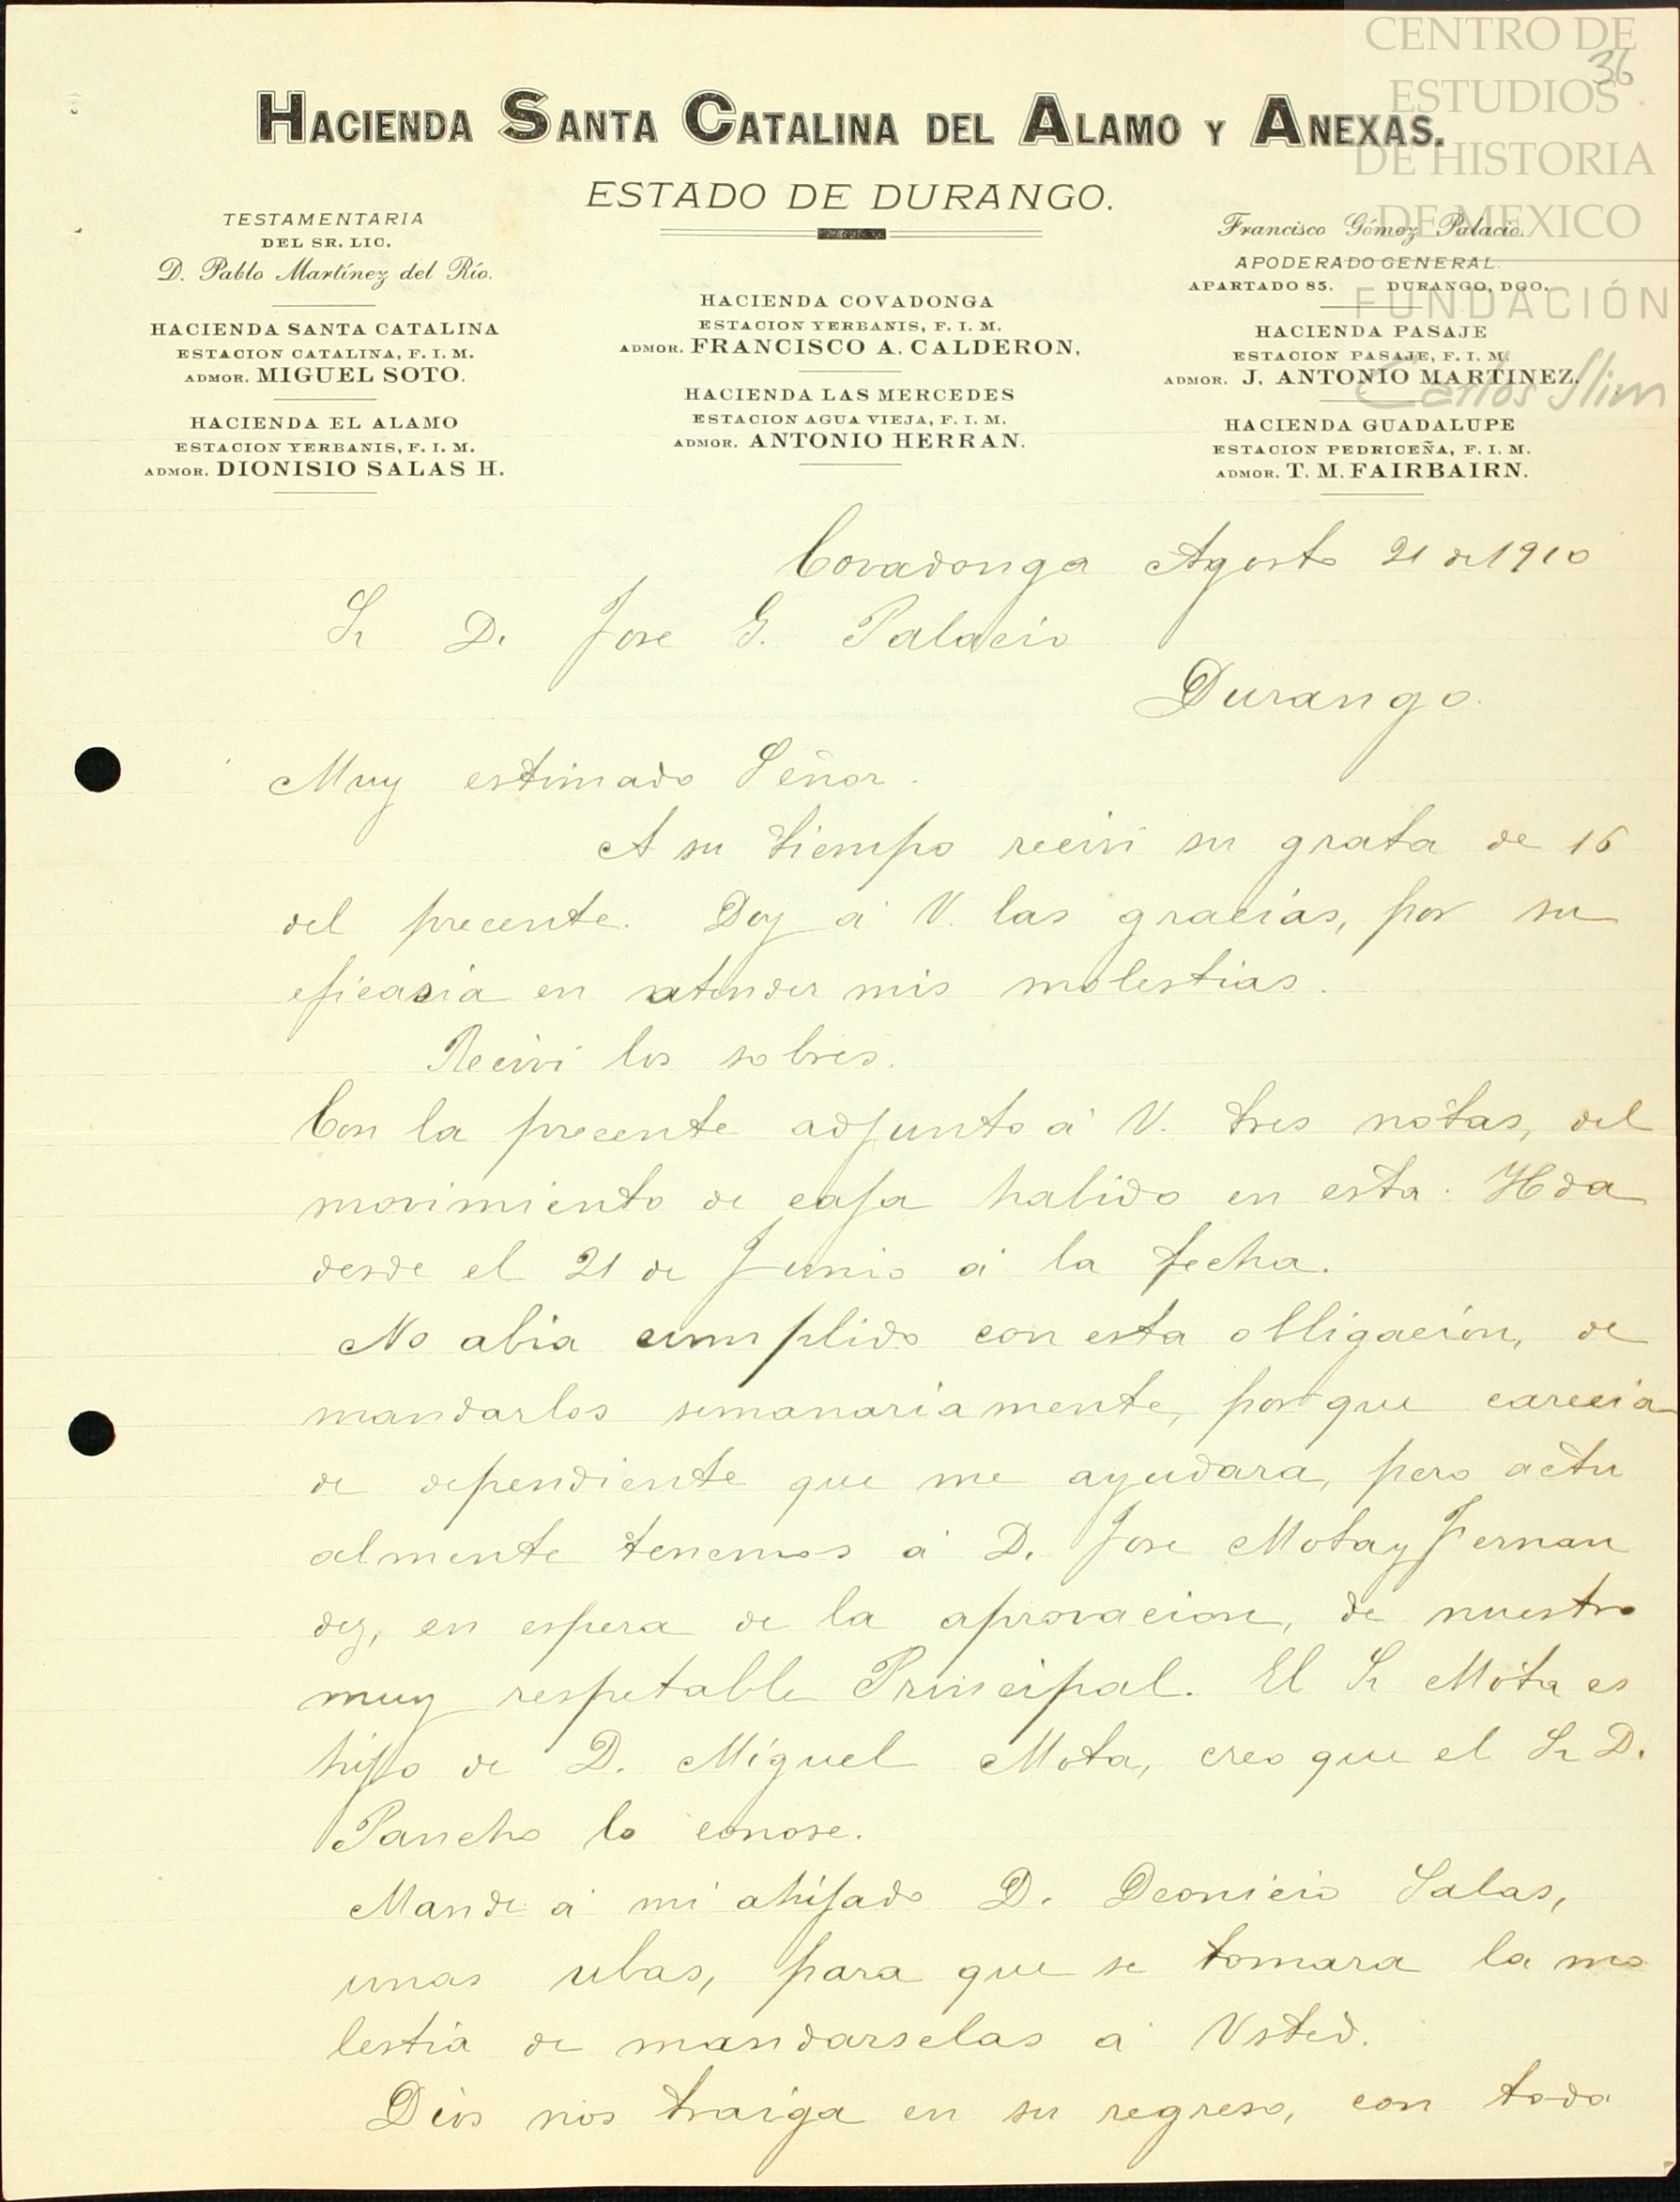 CENTRO DE
ESTUDIOS
DE HISTORIA
DE MEXICO
FUNDACIÓN
Carlos Slim
36
HACIENDA SANTA CATALINA DEL ALAMO Y ANEXAS.
ESTADO DE DURANGO.
TESTAMENTARIA
DEL SR. LIC.
D. Pablo Martínez del Río.
HACIENDA SANTA CATALINA
ESTACION CATALINA, F. I. M.
ADMOR. MIGUEL SOTO.
HACIENDA EL ALAMO
ESTACION YERBANIS, F. I. M.
ADMOR. DIONISIO SALAS H.
HACIENDA COVADONGA
ESTACION YERBANIS, F. I. M.
ADMOR. FRANCISCO A. CALDERON.
HACIENDA LAS MERCEDES
ESTACION AGUA VIEJA, F. I. M.
ADMOR. ANTONIO HERRAN.
Francisco Gómez Palacio.
APODERADO GENERAL.
APARTADO 85. DURANGO, DGO.
HACIENDA PASAJE
ESTACION PASAJE, F. I. M.
ADMOR. J. ANTONIO MARTINEZ.
HACIENDA GUADALUPE
ESTACION PEDRICEÑA, F. I. M.
ADMOR. T. M. FAIRBAIRN.
Covadonga Agosto 21 de 1910
Sr D. Jose G. Palacio
Durango.
Muy estimado Señor.
A su tiempo recivi su grata de 16
del precente. Doy á V. las gracias, por su
eficasia en atender mis molestias.
Recivi los sobres.
Con la precente adjunto á V. tres notas, del
movimiento de caja habido en esta. Hda
desde el 21 de Junio á la fecha.
No abia cumplido con esta obligación, de
mandarlos semanariamente, porque carecia
de dependiente que me ayudara, pero actu
almente tenemos á D. Jose Mota y Fernan
dez, en espera de la aprovacion, de nuestro
muy respetable Principal. El Sr Mota es
hijo de D. Miguel Mota, creo que el Sr D.
Pancho lo conose.
Mande á mi ahijado D. Deonicio Salas,
unas ubas, para que se tomara la mo
lestia de mandarselas a Vsted.
Dios nos traiga en su regreso, con toda